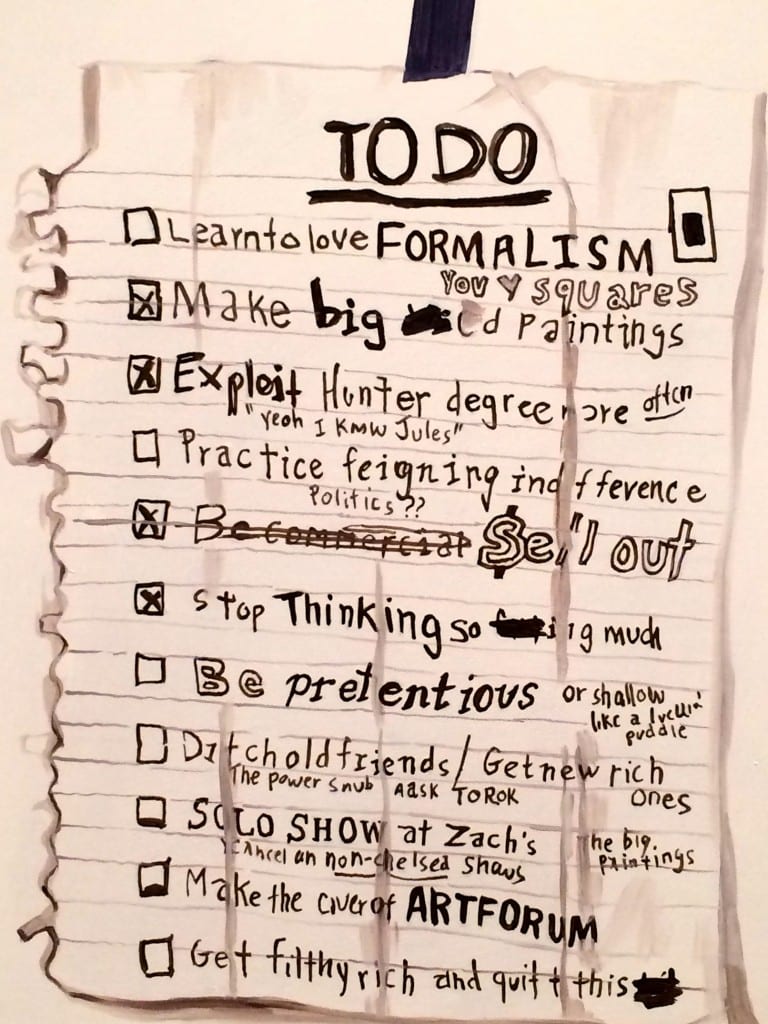 TO DO
Learn to love FORMALISM
You ♥ squares
Make big Paintings
Exploit Hunter degree more often
"Yeah I KNW Jules"
Practice feigning indifference
Politics??
Be commercial $ell out
Stop Thinking so much
Be pretentious or shallow
like a puddle
Ditch old friends / Get new rich
The power snub AASK TOROK ones
SOLO SHOW at Zach's The big
paintings
cancel all non-chelsea shows
Make the cover of ARTFORUM
Get filthy rich and quitt this